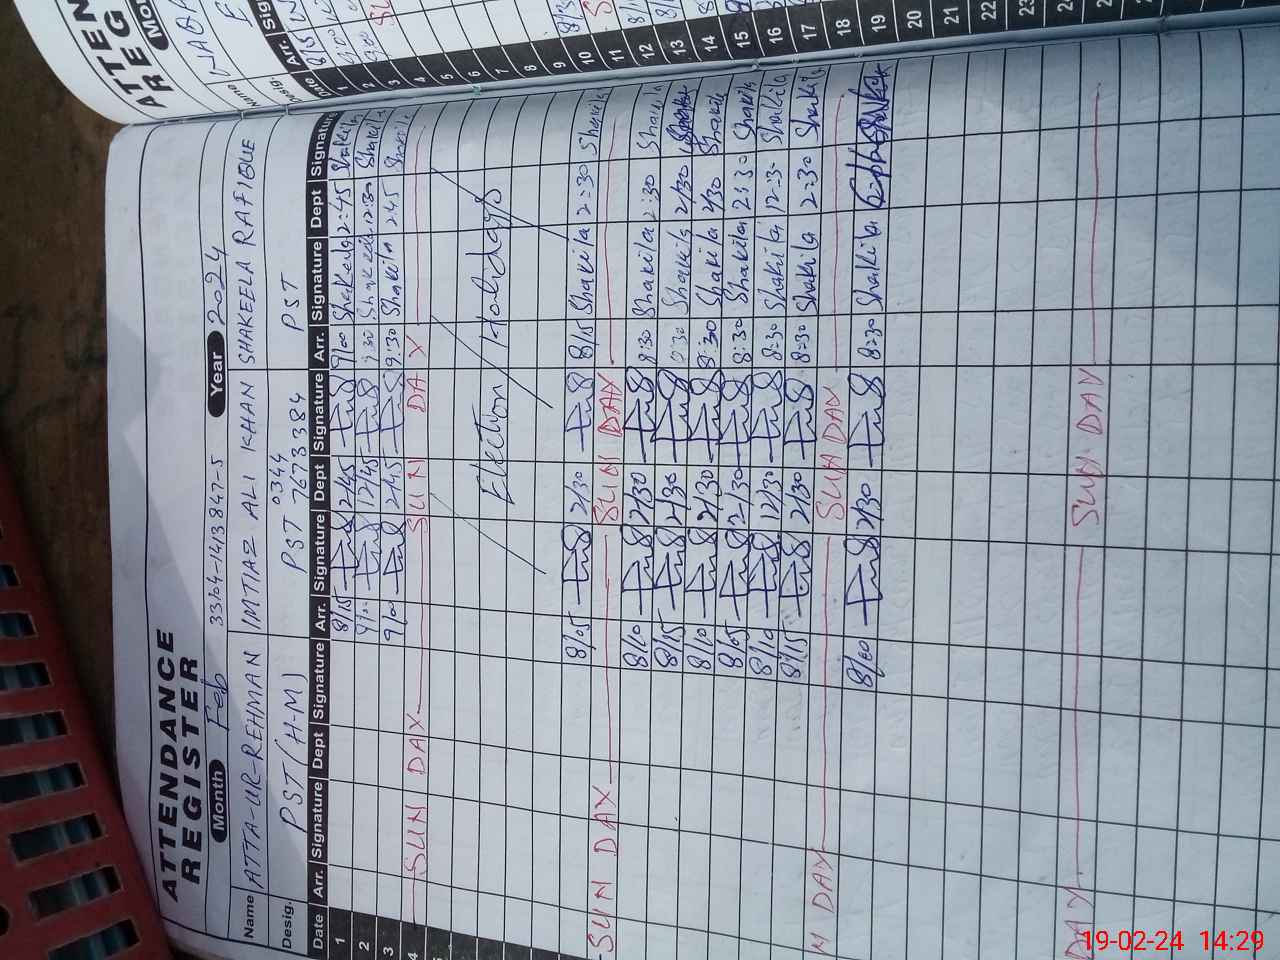 ATTENDANCE
REGISTER
Month Feb Year 2024
33104-1413847-5
Name ATTA-UR-REHMAN IMTIAZ ALI KHAN SHAKEELA RAFIQUE
Desig. PST (H-M) PST 0344 7673384 PST
Date Arr. Signature Dept Signature Arr. Signature Dept Signature Arr. Signature Dept Signature
1 8/15 12/45 9/00 Shakeela 2:45 Shakila
2 9/00 12/45 9:30 Shakeela 12:30 Shakila
3 9/00 2/45 9:30 Shakila 2:45 Shakila
4 SUN DAY SUN DAY
Election Holidays
8/05 2/30 8/15 Shakila 2:30 Shakila
SUN DAY SUN DAY
8/10 2/30 8:30 Shakila 2:30 Shakila
8/15 2/30 8:30 Shakila 2/30
8/10 2/30 8:30 Shakila 2/30 Shakila
8/05 2/30 8:30 Shakila 2:30 Shakila
8/10 12/30 8:30 Shakila 12:30 Shakila
8/15 2/30 8:30 Shakila 2:30 Shakila
N DAY SUN DAY
8/00 2/30 8:30 Shakila
DAY SUN DAY
ATTEN
REG
Mo
Name
Desig.
Date Arr. Sig
1 8/15
2
3
4
5
6
7
8
9
10
11
12
13
14
15
16
17
18
19
20
21
22
23
24
19-02-24 14:29